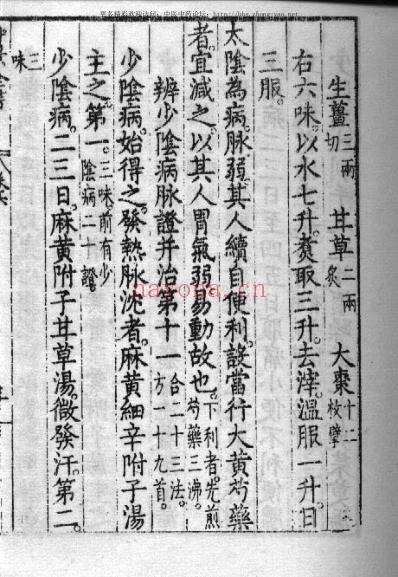 更多精彩欢迎访问：中医中药论坛：http://bbs.zhongyoo.net
生薑三兩切 甘草二兩炙 大棗十二枚擘
右六味。以水七升。煑取三升。去滓。溫服一升。日
三服。
太陰為病。脉弱。其人續自便利。設當行大黃芍藥
者。宜減之。以其人胃氣弱易動故也。下利者。先煎芍藥三沸。
辨少陰病脉證并治第十一合二十三法。方一十九首。
少陰病。始得之。發熱脉沈者。麻黃細辛附子湯
主之。第一。三味前有少陰病二十證
少陰病。二三日。麻黃附子甘草湯。微發汗。第二。
三味
nayona.cn